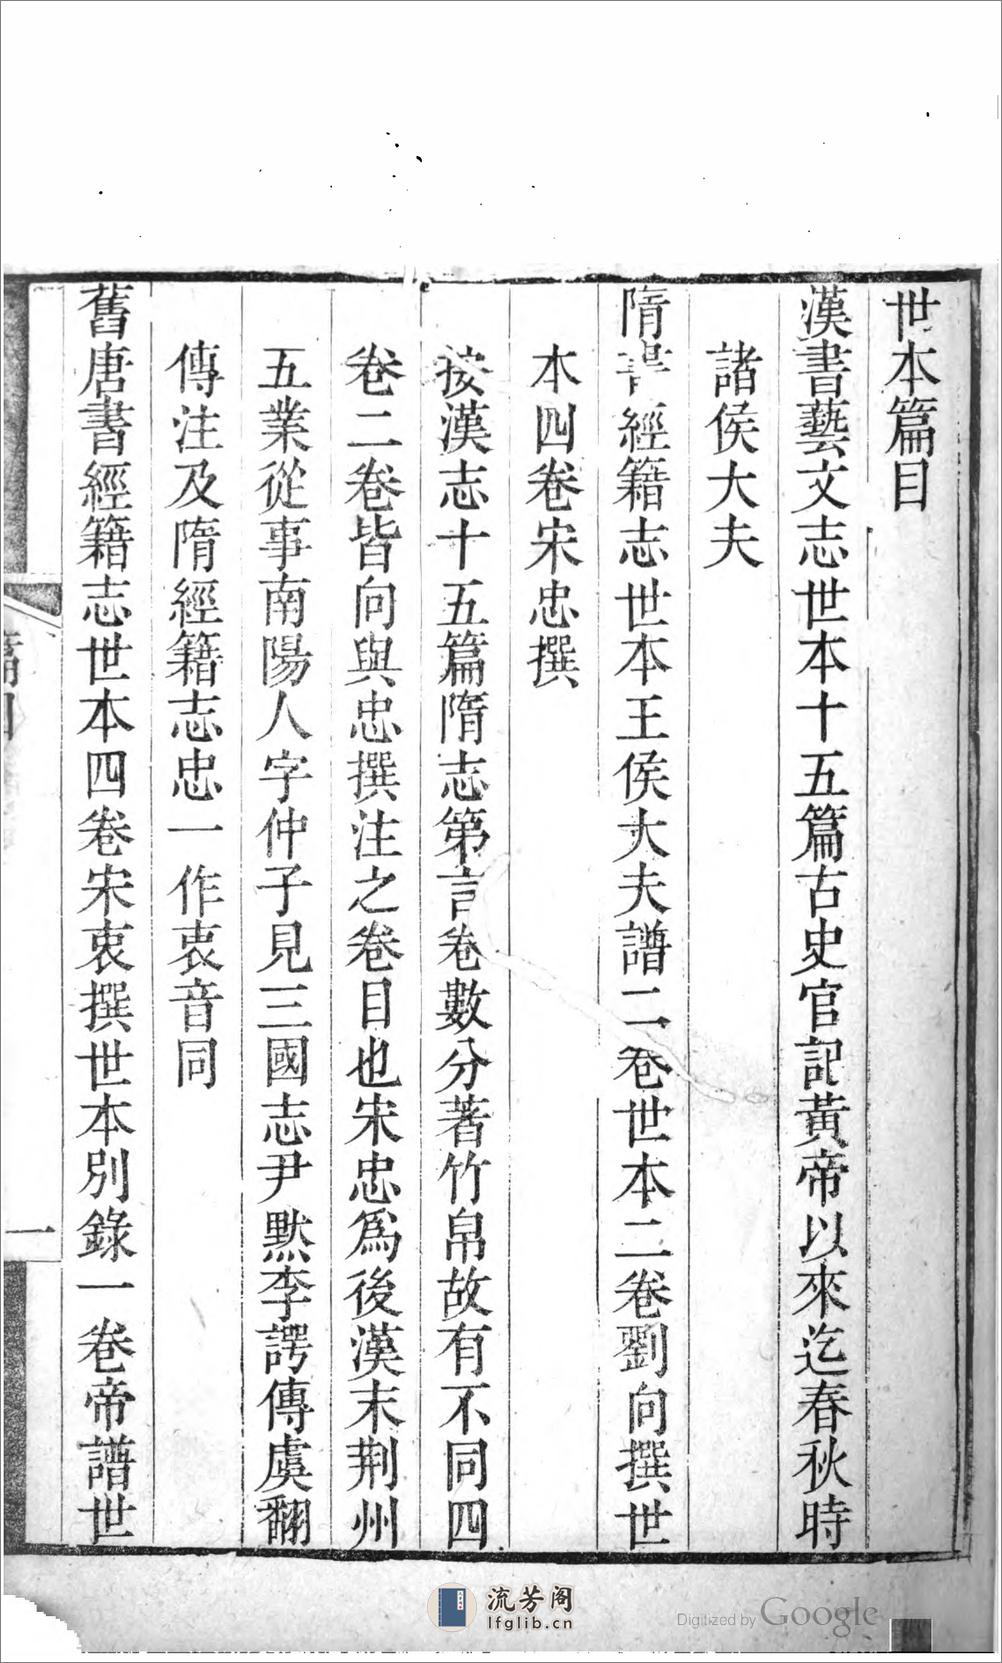 世本篇目
漢書藝文志世本十五篇古史官記黃帝以來迄春秋時
諸侯大夫
隋書經籍志世本王侯大夫譜二卷世本二卷劉向撰世
本四卷宋忠撰
按漢志十五篇隋志第言卷數分著竹帛故有不同四
卷二卷皆向與忠撰注之卷目也宋忠爲後漢末荆州
五業從事南陽人字仲子見三國志尹默李譔傳虞翻
傳注及隋經籍志忠一作衷音同
舊唐書經籍志世本四卷宋衷撰世本別錄一卷帝譜世
篇目
一
流芳阁
lfglib.cn
Digitized by Google